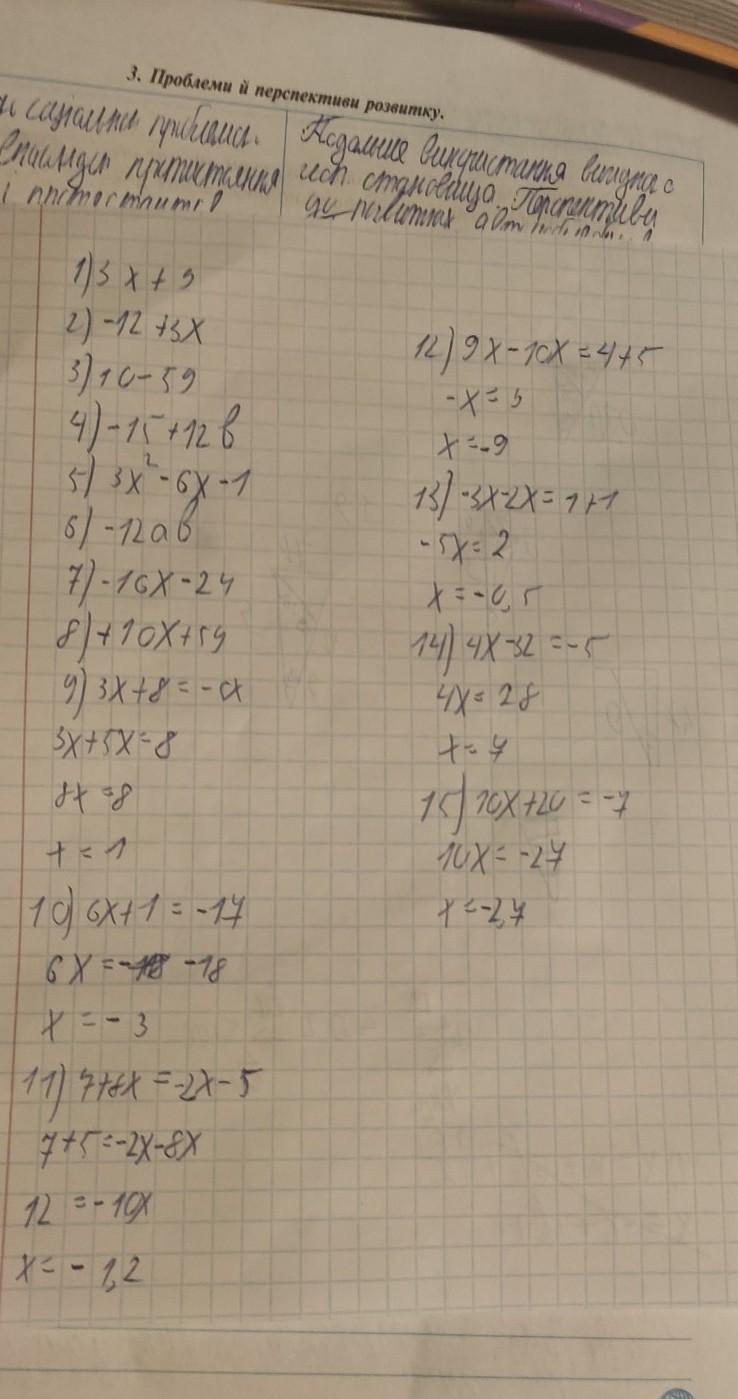 3. Проблеми й перспективи розвитку.
и соціальні проблеми.
протистояння
Подальше використання вигідного
ісп. становища. Перспективи
1) 3x + 9
2) -12 + 3x
3) 10 - 5y
4) -15 + 12b
5) 3x² - 6x - 1
6) -12ab
7) -16x - 24
8) +10x + 5y
9) 3x + 8 = -x
3x + 5x = 8
8x = 8
x = 1
10) 6x + 1 = -17
6x = -18
x = -3
11) 7 + 8x = -2x - 5
7 + 5 = -2x - 8x
12 = -10x
x = -1,2
12) 9x - 10x = 4 + 5
-x = 9
x = -9
13) -3x - 2x = 1 + 1
-5x = 2
x = -0,5
14) 4x - 32 = -5
4x = 28
x = 7
15) 10x + 20 = -7
10x = -27
x = -2,7